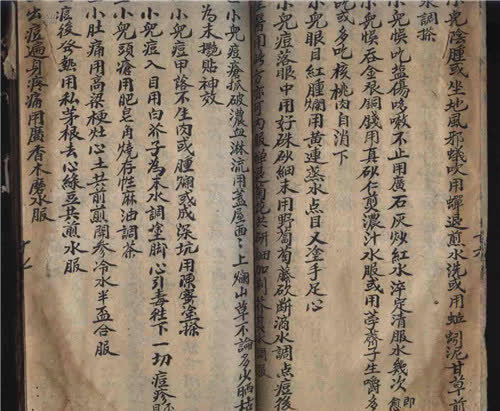 小兒陰腫或坐地風邪蟻吹用蟬退煎水洗或用蚯蚓泥甘草前
水調搽
小兒悞吃盐傷咳嗽不止用廣石灰炒紅水淬定清服水幾次即愈
小兒悞吞金銀銅錢用真砂仁煎濃汁水服或用荸薺子生嚼多
吃或多吃核桃肉自消下
小兒眼目紅腫爛用黄連蒸水点目又塗手足心
小兒痘落眼中用好硃砂細末用野葡萄藤砍断滴水調点痘後
一小兒痘瘡抓破濃血淋流用蓋屋面上爛山草不論多少晒枯
為末摻貼神效
小兒痘甲落不生肉或腫爛或成深坑用陳醬塗搽
小兒痘入目用白芥子為末水調塗脚心引毒徃下一切痘疹
小兒頭瘡用肥皂角燒存性麻油調茶
一小肚痛用高粱梗灶心土共前煎開参冷水半盃合服
痘後發熱用私茅根去心綠豆共煎水服
出痘遍身疼痛用廣香木磨水服